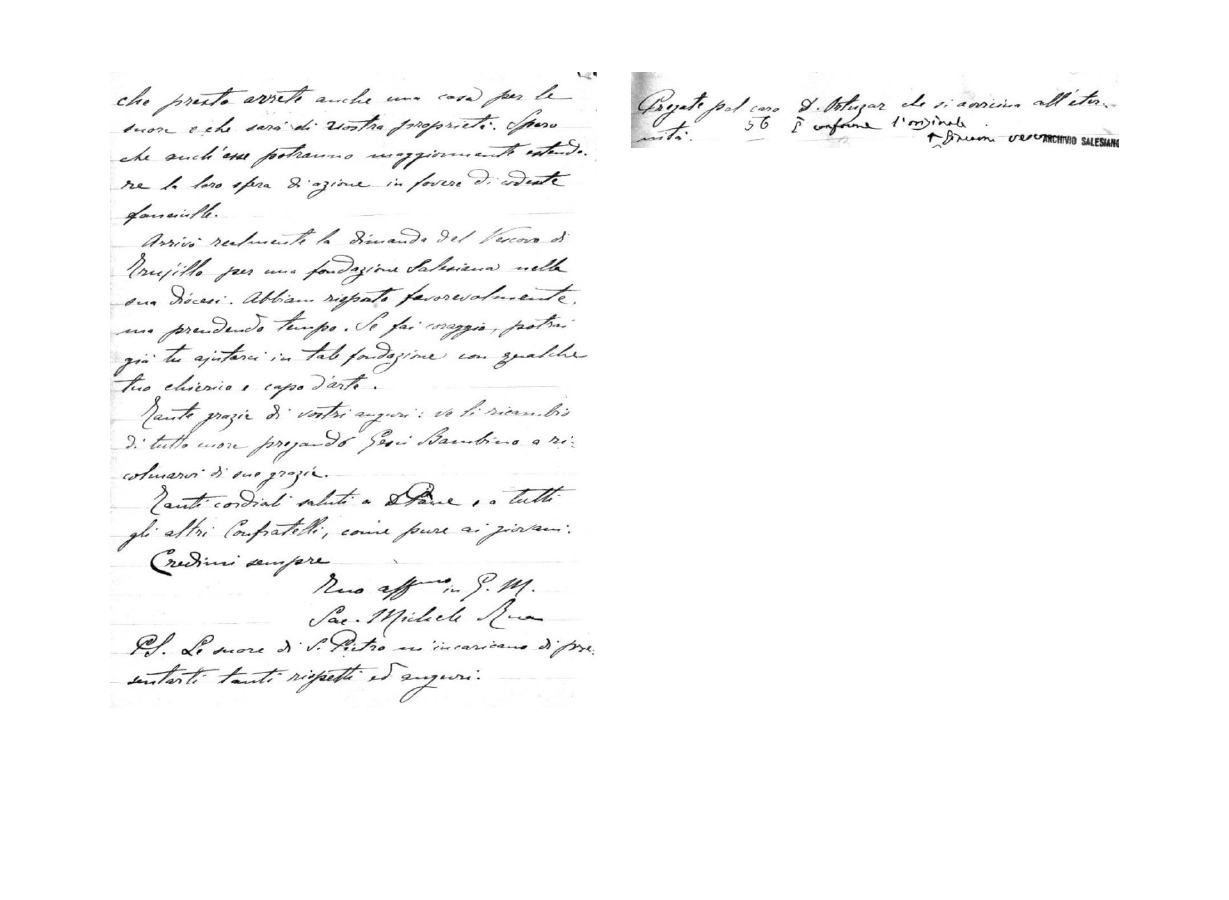 che presto avrete anche una casa per le
suore e che sarà di vostra proprietà. Spero
che anch'esse potranno maggiormente estende-
re la loro sfera di azione in favore di codeste
fanciulle.
Arrivò realmente la dimanda del Vescovo di
Trujillo per una fondazione Salesiana nella
sua Diocesi. Abbiam risposto favorevolmente,
ma prendendo tempo. Se fai coraggio, potrai
già tu ajutarci in tale fondazione con qualche
tuo chierico e capo d'arte.
Tante grazie di vostri auguri: ve li ricambio
di tutto cuore pregando Gesù Bambino a ri-
colmarvi di sue grazie.
Tanti cordiali saluti a D Pane e a tutti
gli altri Confratelli, come pure ai giovani.
Credimi sempre
Tuo affmo in G. M.
Sac. Michele Rua
PS. Le suore di S. Pietro m'incaricano di pre-
sentarti tanti rispetti ed auguri.
Pregate pel caro D. Ortuzar che si avvicina all'eter-
nità. 56 È conforme l'originale.
ARCHIVIO SALESIANO